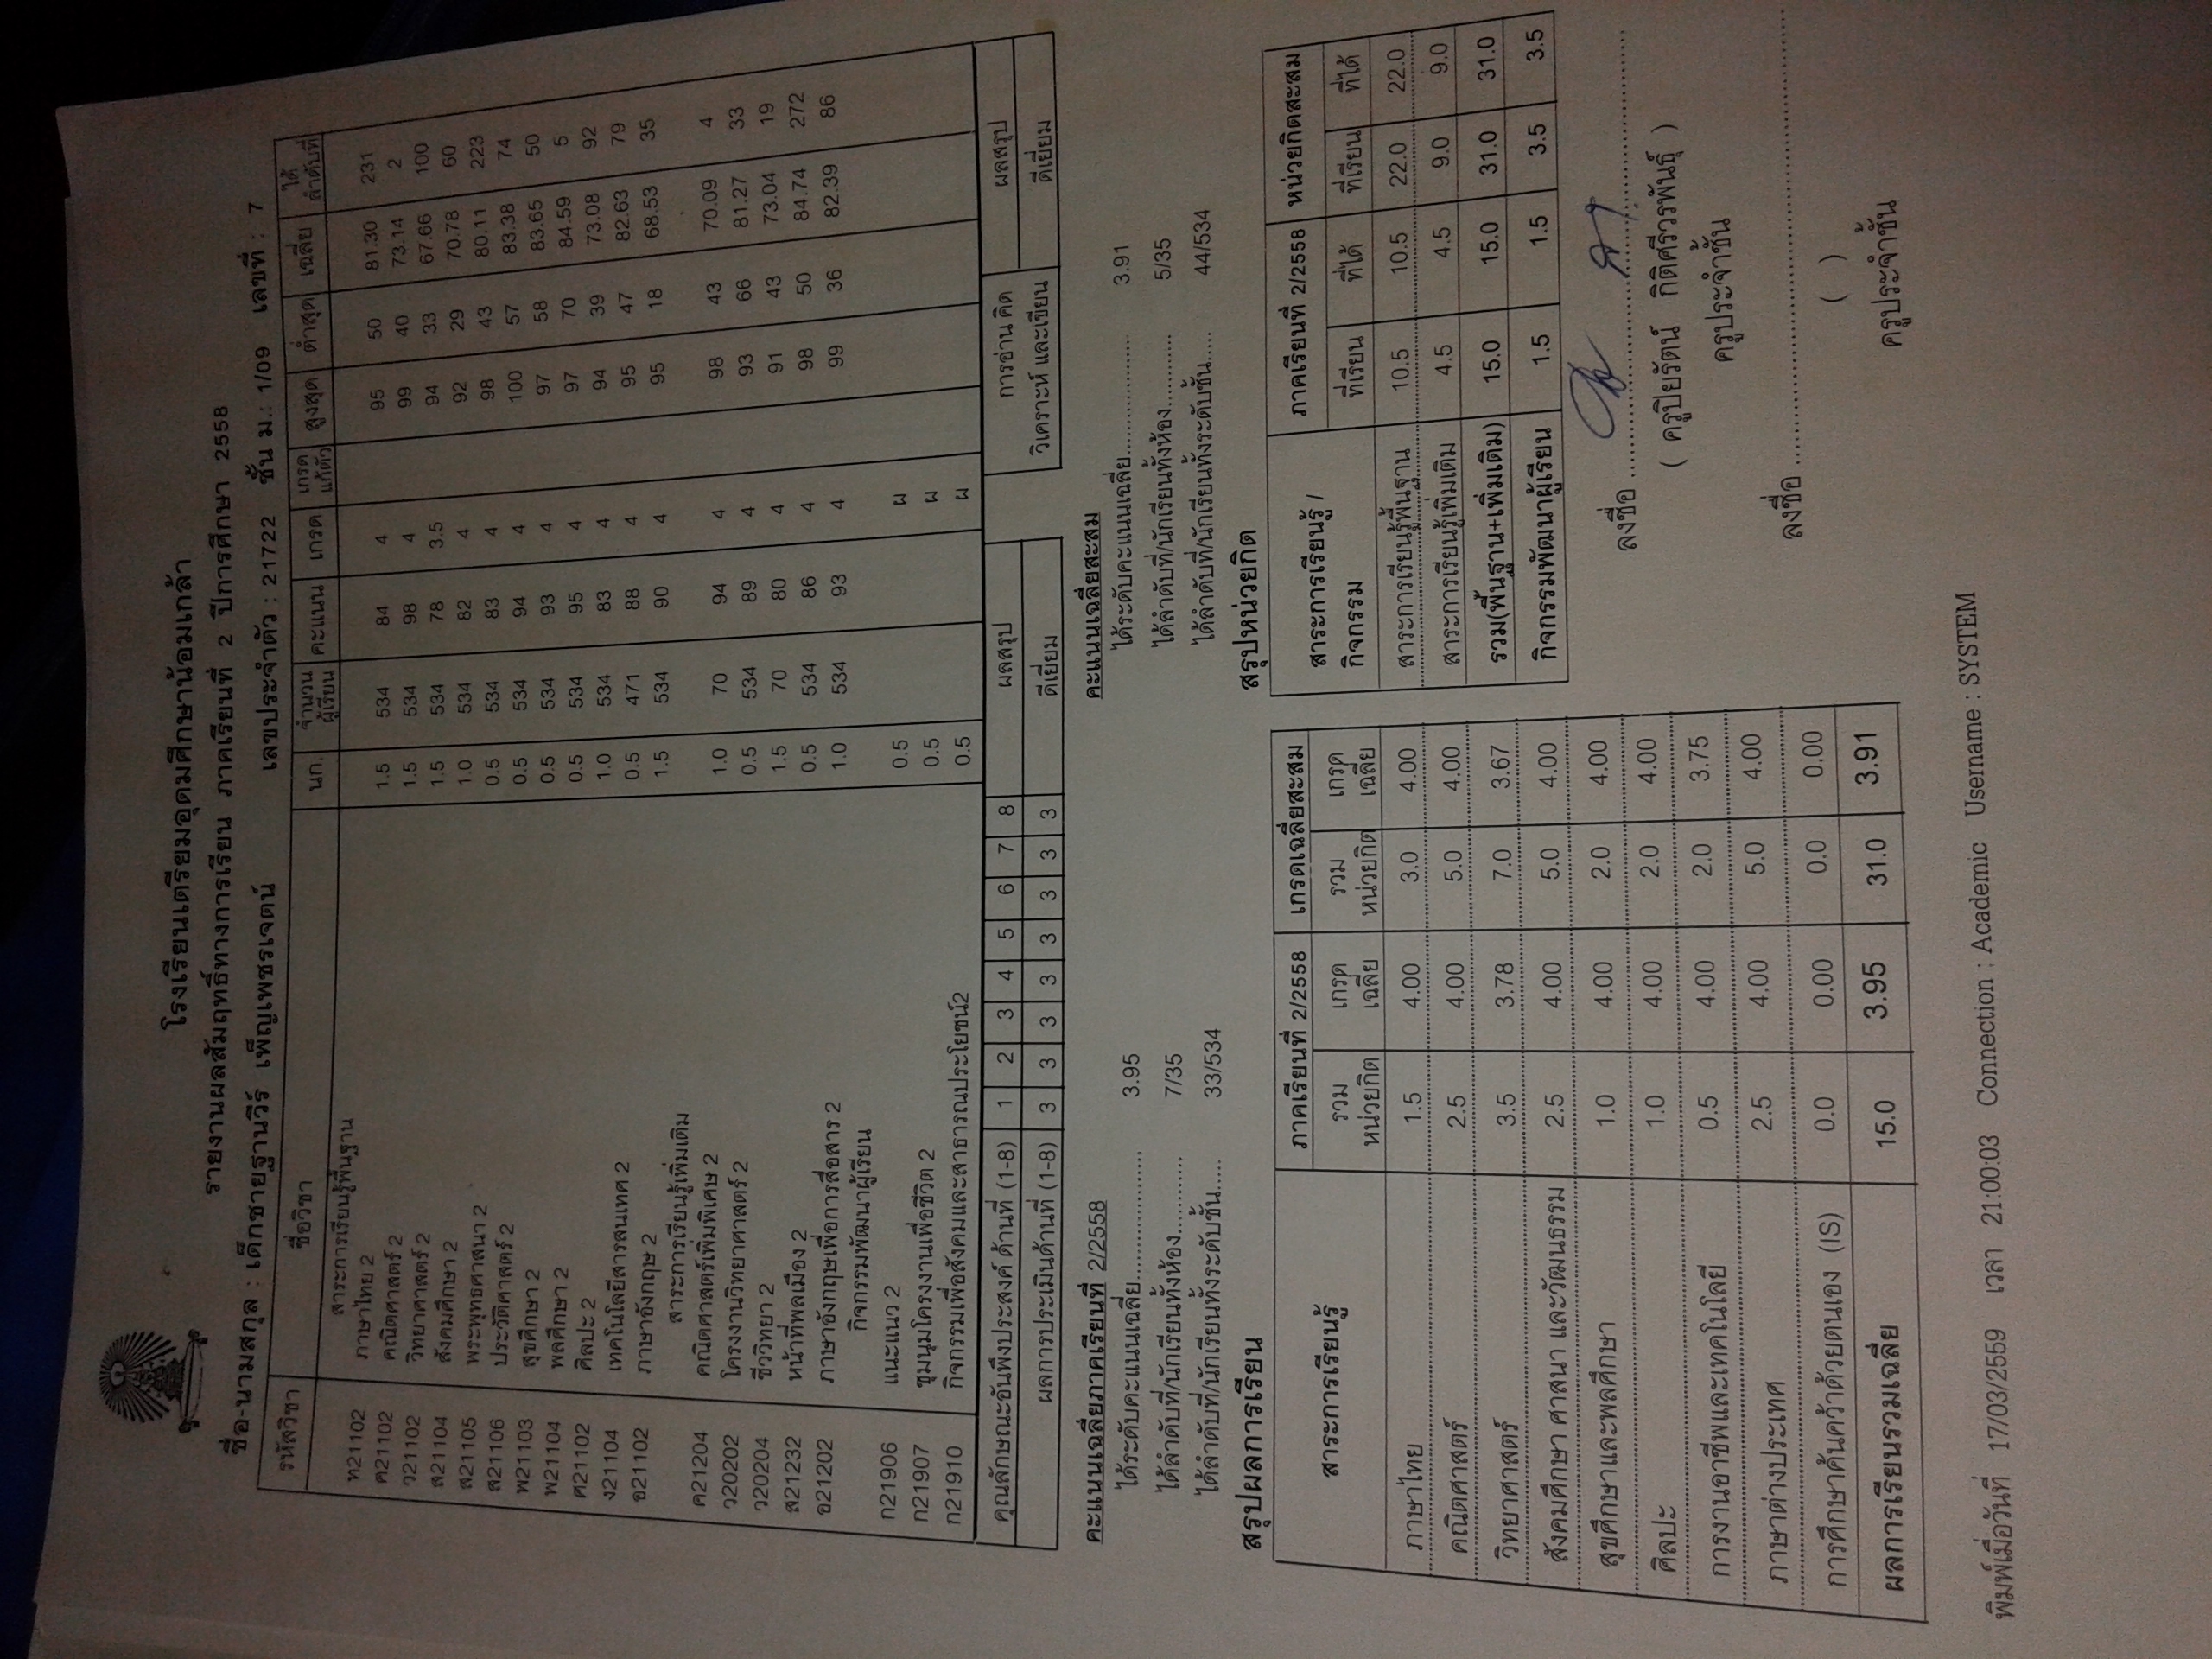 โรงเรียนเตรียมอุดมศึกษาน้อมเกล้า
รายงานผลสัมฤทธิ์ทางการเรียน ภาคเรียนที่ 2 ปีการศึกษา 2558
ชื่อ-นามสกุล : เด็กชายฐานวีร์ เพ็ญเพชรเจตน์ เลขประจำตัว : 21722 ชั้น ม.: 1/09 เลขที่ : 7
รหัสวิชา ชื่อวิชา นก. จำนวนผู้เรียน คะแนน เกรด เกรดแก้ตัว สูงสุด ต่ำสุด เฉลี่ย ได้ลำดับที่
สาระการเรียนรู้พื้นฐาน
ท21102 ภาษาไทย 2 1.5 534 84 4 95 50 81.30 231
ค21102 คณิตศาสตร์ 2 1.5 534 98 4 99 40 73.14 2
ว21102 วิทยาศาสตร์ 2 1.5 534 78 3.5 94 33 67.66 100
ส21104 สังคมศึกษา 2 1.0 534 82 4 92 29 70.78 60
ส21105 พระพุทธศาสนา 2 0.5 534 83 4 98 43 80.11 223
ส21106 ประวัติศาสตร์ 2 0.5 534 94 4 100 57 83.38 74
พ21103 สุขศึกษา 2 0.5 534 93 4 97 58 83.65 50
พ21104 พลศึกษา 2 0.5 534 95 4 97 70 84.59 5
ศ21102 ศิลปะ 2 1.0 534 83 4 94 39 73.08 92
ง21104 เทคโนโลยีสารสนเทศ 2 0.5 471 88 4 95 47 82.63 79
อ21102 ภาษาอังกฤษ 2 1.5 534 90 4 95 18 68.53 35
สาระการเรียนรู้เพิ่มเติม
ค21204 คณิตศาสตร์เพิ่มพิเศษ 2 1.0 70 94 4 98 43 70.09 4
ว20202 โครงงานวิทยาศาสตร์ 2 0.5 534 89 4 93 66 81.27 33
ว20204 ชีววิทยา 2 1.5 70 80 4 91 43 73.04 19
ส21232 หน้าที่พลเมือง 2 0.5 534 86 4 98 50 84.74 272
อ21202 ภาษาอังกฤษเพื่อการสื่อสาร 2 1.0 534 93 4 99 36 82.39 86
กิจกรรมพัฒนาผู้เรียน
ก21906 แนะแนว 2 0.5 ผ
ก21907 ชุมนุมโครงงานเพื่อชีวิต 2 0.5 ผ
ก21910 กิจกรรมเพื่อสังคมและสาธารณประโยชน์2 0.5 ผ
คุณลักษณะอันพึงประสงค์ ด้านที่ (1-8) 1 2 3 4 5 6 7 8 ผลสรุป การอ่าน คิด ผลสรุป
ผลการประเมินด้านที่ (1-8) 3 3 3 3 3 3 3 3 ดีเยี่ยม วิเคราะห์ และเขียน ดีเยี่ยม
คะแนนเฉลี่ยภาคเรียนที่ 2/2558 คะแนนเฉลี่ยสะสม
ได้ระดับคะแนนเฉลี่ย.................... 3.95 ได้ระดับคะแนนเฉลี่ย.................... 3.91
ได้ลำดับที่/นักเรียนทั้งห้อง............ 7/35 ได้ลำดับที่/นักเรียนทั้งห้อง............ 5/35
ได้ลำดับที่/นักเรียนทั้งระดับชั้น..... 33/534 ได้ลำดับที่/นักเรียนทั้งระดับชั้น..... 44/534
สรุปผลการเรียน
สาระการเรียนรู้ ภาคเรียนที่ 2/2558 เกรดเฉลี่ยสะสม
รวมหน่วยกิต เกรดเฉลี่ย รวมหน่วยกิต เกรดเฉลี่ย
ภาษาไทย 1.5 4.00 3.0 4.00
คณิตศาสตร์ 2.5 4.00 5.0 4.00
วิทยาศาสตร์ 3.5 3.78 7.0 3.67
สังคมศึกษา ศาสนา และวัฒนธรรม 2.5 4.00 5.0 4.00
สุขศึกษาและพลศึกษา 1.0 4.00 2.0 4.00
ศิลปะ 1.0 4.00 2.0 4.00
การงานอาชีพและเทคโนโลยี 0.5 4.00 2.0 3.75
ภาษาต่างประเทศ 2.5 4.00 5.0 4.00
การศึกษาค้นคว้าด้วยตนเอง (IS) 0.0 0.00 0.0 0.00
ผลการเรียนรวมเฉลี่ย 15.0 3.95 31.0 3.91
สรุปหน่วยกิต
สาระการเรียนรู้ / กิจกรรม ภาคเรียนที่ 2/2558 หน่วยกิตสะสม
ที่เรียน ที่ได้ ที่เรียน ที่ได้
สาระการเรียนรู้พื้นฐาน 10.5 10.5 22.0 22.0
สาระการเรียนรู้เพิ่มเติม 4.5 4.5 9.0 9.0
รวม(พื้นฐาน+เพิ่มเติม) 15.0 15.0 31.0 31.0
กิจกรรมพัฒนาผู้เรียน 1.5 1.5 3.5 3.5
ลงชื่อ ........................................
( ครูปิยรัตน์ กิติศรีวรพันธุ์ )
ครูประจำชั้น
ลงชื่อ ........................................
( )
ครูประจำชั้น
พิมพ์เมื่อวันที่ 17/03/2559 เวลา 21:00:03 Connection : Academic Username : SYSTEM